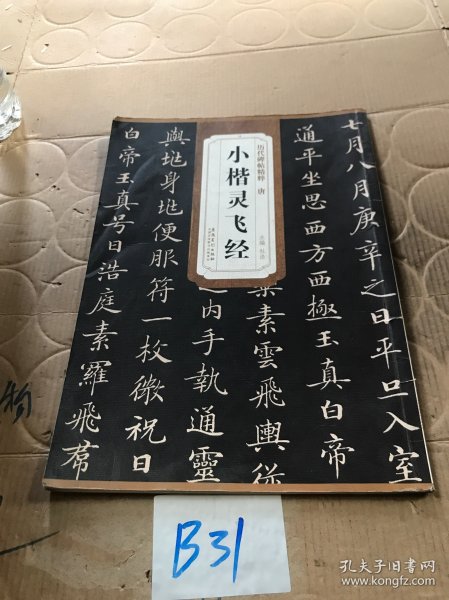 七月八月庚辛之日平旦入室
通平坐思西方西極玉真白帝
乘素雲飛輿從
内手執通靈
與地身地便服符一枚微祝日
白帝玉真号日浩庭素羅飛帬
历代碑帖精粹 唐
小楷灵飞经
主编 杜浩
安徽美术出版社
B31
孔夫子旧书网
www.kongfz.com